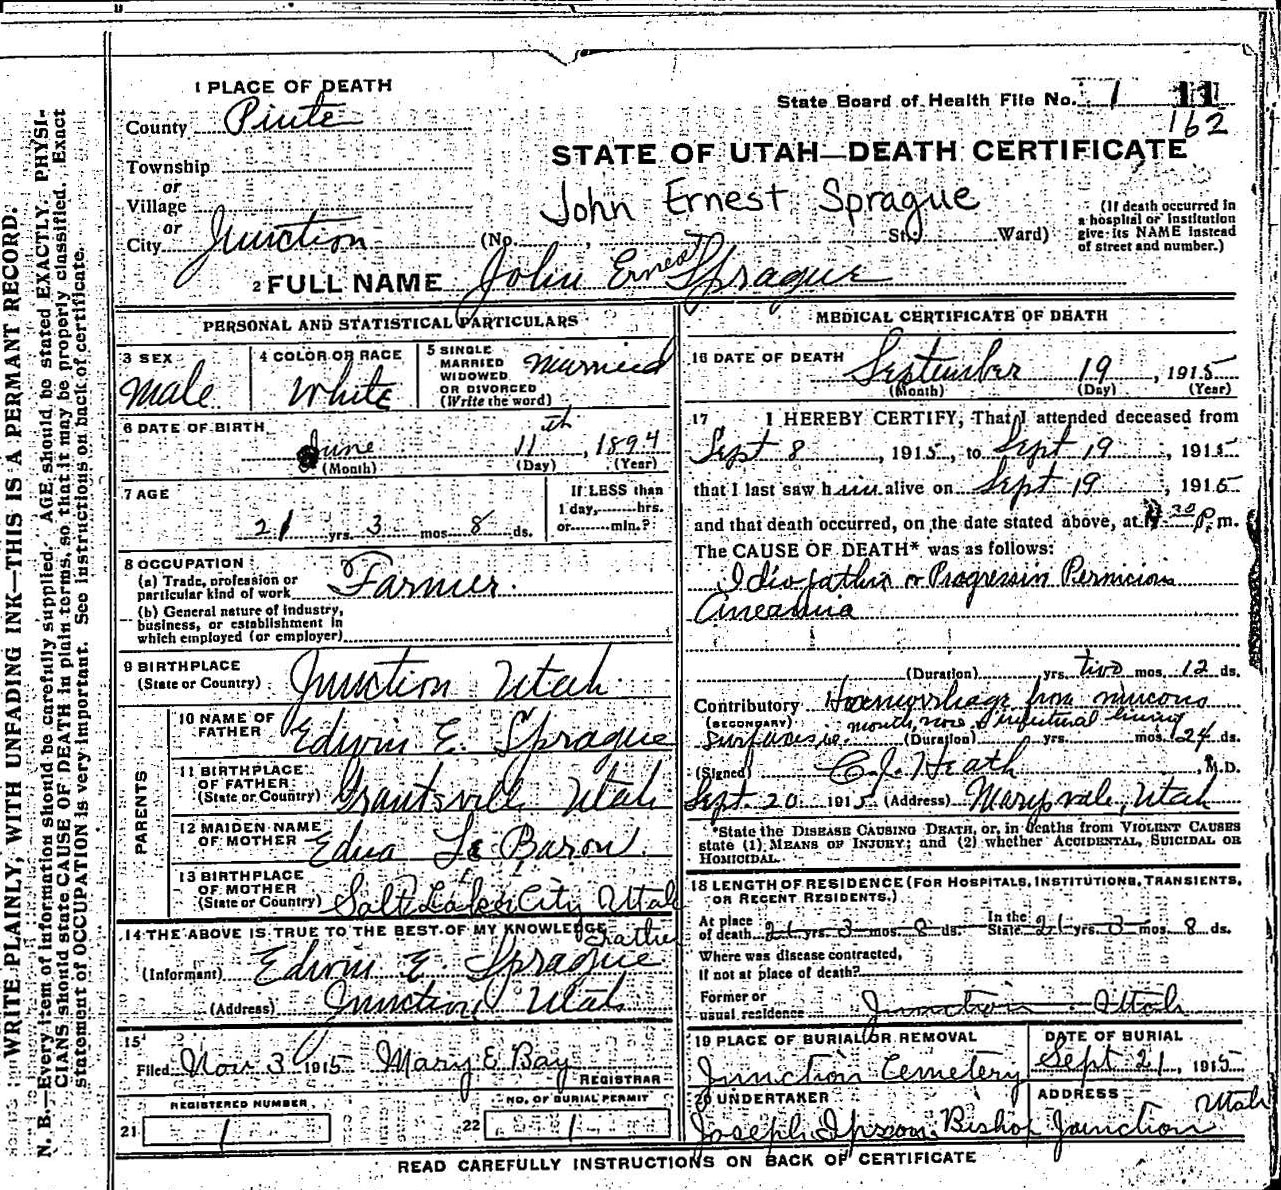 WRITE PLAINLY, WITH UNFADING INK—THIS IS A PERMANT RECORD.
N. B.—Every item of information should be carefully supplied. AGE should be stated EXACTLY. PHYSI-
CIANS should state CAUSE OF DEATH in plain terms, so that it may be properly classified. Exact
statement of OCCUPATION is very important. See instructions on back of certificate.
1 PLACE OF DEATH
County Piute
State Board of Health File No. 1 11
162
Township
or
Village
or
City Junction
STATE OF UTAH—DEATH CERTIFICATE
John Ernest Sprague
(No. , St., Ward)
(If death occurred in
a hospital or institution
give its NAME instead
of street and number.)
2 FULL NAME John Ernest Sprague
PERSONAL AND STATISTICAL PARTICULARS
3 SEX
Male
4 COLOR OR RACE
White
5 SINGLE
MARRIED
WIDOWED
OR DIVORCED
(Write the word)
Married
6 DATE OF BIRTH
June 11th, 1894
(Month) (Day) (Year)
7 AGE
21 yrs. 3 mos. 8 ds.
If LESS than
1 day, hrs.
or min.?
8 OCCUPATION
(a) Trade, profession or
particular kind of work Farmer.
(b) General nature of industry,
business, or establishment in
which employed (or employer)
9 BIRTHPLACE
(State or Country) Junction Utah
PARENTS
10 NAME OF
FATHER Edwin E. Sprague
11 BIRTHPLACE
OF FATHER
(State or Country) Grantsville Utah
12 MAIDEN NAME
OF MOTHER Edna Le Baron.
13 BIRTHPLACE
OF MOTHER
(State or Country) Salt Lake City Utah
14 THE ABOVE IS TRUE TO THE BEST OF MY KNOWLEDGE
Father
(Informant) Edwin E. Sprague
(Address) Junction Utah
15
Filed Nov 3 1915 Mary E Bay
REGISTRAR
REGISTERED NUMBER
21 1
NO. OF BURIAL PERMIT
22 1
MEDICAL CERTIFICATE OF DEATH
16 DATE OF DEATH
September 19, 1915
(Month) (Day) (Year)
17 I HEREBY CERTIFY, That I attended deceased from
Sept 8, 1915, to Sept 19, 1915
that I last saw him alive on Sept 19, 1915
and that death occurred, on the date stated above, at 30 P. m.
The CAUSE OF DEATH* was as follows:
Idiopathic or Progressive Pernicious
Aneamia
(Duration) yrs. two mos. 12 ds.
Contributory Haemorrhage from mucous
(SECONDARY)
mouth nose & intestinal lining
surfaces ie. (Duration) yrs. mos. 24 ds.
(Signed) C. J. Heath, M.D.
Sept. 20 1915 (Address) Marysvale, Utah
*State the DISEASE CAUSING DEATH, or, in deaths from VIOLENT CAUSES
state (1) MEANS OF INJURY; and (2) whether ACCIDENTAL, SUICIDAL OR
HOMICIDAL.
18 LENGTH OF RESIDENCE (FOR HOSPITALS, INSTITUTIONS, TRANSIENTS,
OR RECENT RESIDENTS.)
At place
of death 21 yrs. 3 mos. 8 ds.
In the
State 21 yrs. 3 mos. 8 ds.
Where was disease contracted,
if not at place of death?
Former or
usual residence Junction Utah
19 PLACE OF BURIAL OR REMOVAL
Junction Cemetery
DATE OF BURIAL
Sept 21, 1915
20 UNDERTAKER
Joseph Ipson, Bishop
ADDRESS
Utah
Junction
READ CAREFULLY INSTRUCTIONS ON BACK OF CERTIFICATE